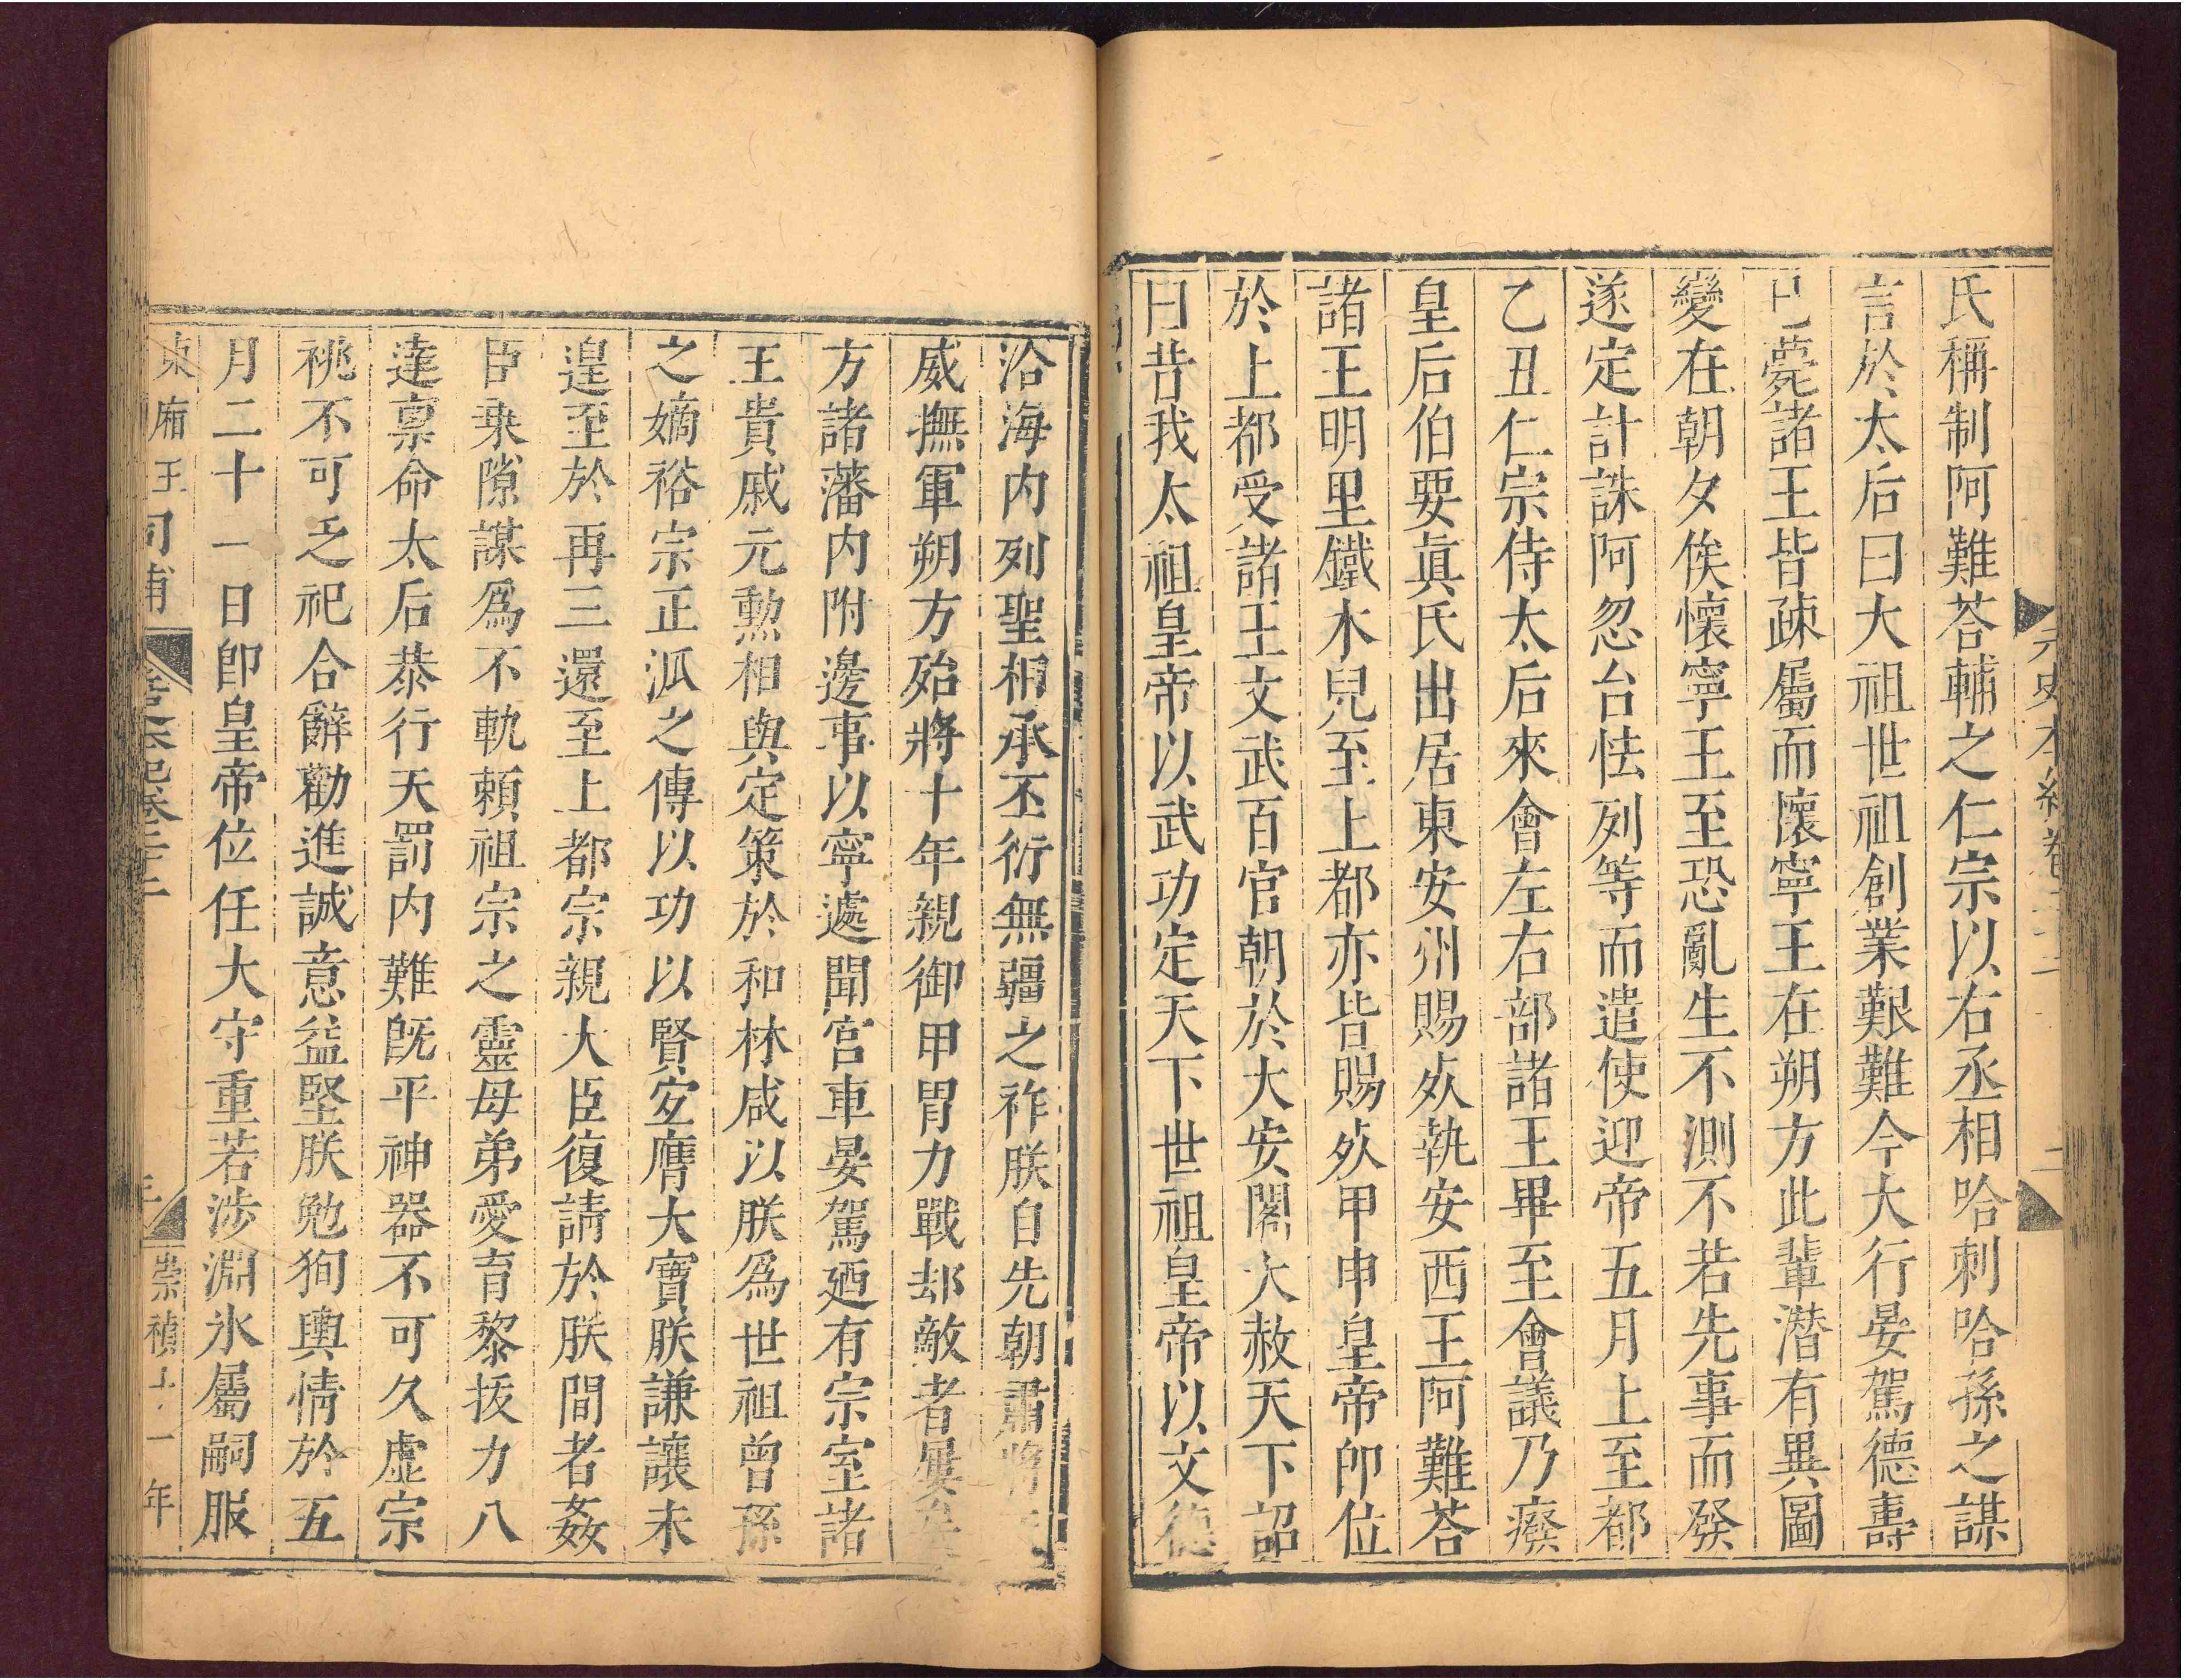 元史本紀卷二十二 二
氏稱制阿難荅輔之仁宗以右丞相哈剌哈孫之謀
言於太后曰太祖世祖創業艱難今大行晏駕德壽
已薨諸王皆疎屬而懷寧王在朔方此輩潛有異圖
變在朝夕俟懷寧王至恐亂生不測不若先事而發
遂定計誅阿忽台怯列等而遣使迎帝五月上至都
乙丑仁宗侍太后來會左右部諸王畢至會議乃廢
皇后伯要真氏出居東安州賜死執安西王阿難荅
諸王明里鐵木兒至上都亦皆賜死甲申皇帝卽位
於上都受諸王文武百官朝於大安閣大赦天下詔
曰昔我太祖皇帝以武功定天下世祖皇帝以文德
洽海內列聖相承丕衍無疆之祚朕自先朝肅將天
威撫軍朔方殆將十年親御甲冑力戰却敵者屢矣
方諸藩內附邊事以寧遽聞宮車晏駕廼有宗室諸
王貴戚元勲相與定策於和林咸以朕爲世祖曾孫
之嫡裕宗正派之傳以功以賢宜膺大寶朕謙讓未
遑至於再三還至上都宗親大臣復請於朕間者姦
臣乗隙謀爲不軌賴祖宗之靈母弟愛育黎拔力八
達禀命太后恭行天罰內難旣平神器不可久虛宗
祧不可乏祀合辭勸進誠意益堅朕勉徇輿情於五
月二十一日卽皇帝位任大守重若涉淵氷屬嗣服
東廂 司 三 崇禎十一年